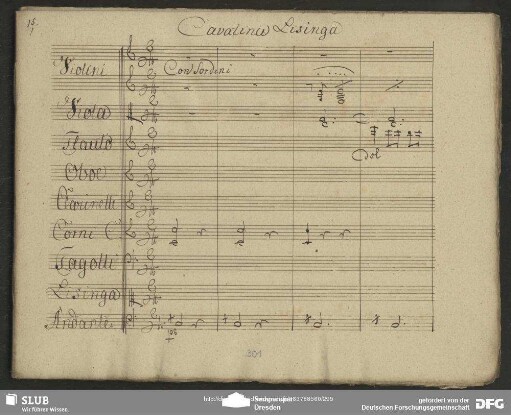 15.
Cavatina Lisinga
Violini
Con Sordini
Viola
Flauto
Dol
Oboe
Clarinetti
Corni C
Fagotti
Lisinga
Andante
301
SLUB
Wir führen Wissen.
Dresden
gefördert von der
Deutschen Forschungsgemeinschaft
DFG